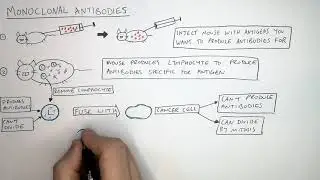 MONOCLONAL ANTIBODIES
①
INJECT MOUSE WITH ANTIGENS YOU
WANT TO PRODUCE ANTIBODIES FOR
②
MOUSE PRODUCES LYMPHOCYTE TO PRODUCE
ANTIBODIES SPECIFIC FOR ANTIGEN
REMOVE LYMPHOCYTE
PRODUCES
ANTIBODIES
CAN'T
DIVIDE
L
FUSE WITH
CANCER CELL
CAN'T PRODUCE
ANTIBODIES
CAN DIVIDE
BY MITOSIS